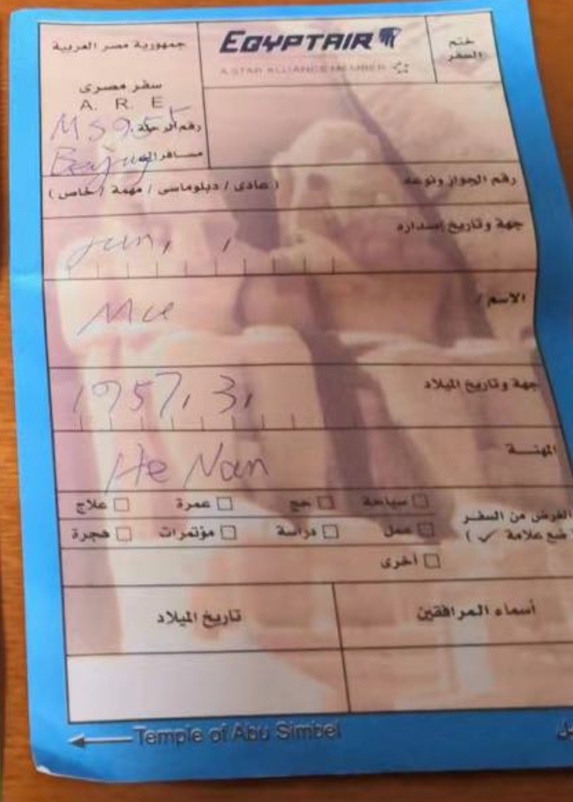 جمهورية مصر العربية
EGYPTAIR
A STAR ALLIANCE MEMBER
ختم
السفر
سفر مصرى
A. R. E
MS955
رقم الرحلة:
Beijing
مسافر الى:
رقم الجواز ونوعه
( عادى / دبلوماسى / مهمة / خاص )
جهة وتاريخ إصداره
الاسم /
جهة وتاريخ الميلاد
1957, 3,
المهنــة
He Nan
الغرض من السفر
( ضع علامة ✓ )
سياحة
حج
عمرة
علاج
عمل
دراسة
مؤتمرات
هجرة
أخرى
أسماء المرافقين
تاريخ الميلاد
Temple of Abu Simbel